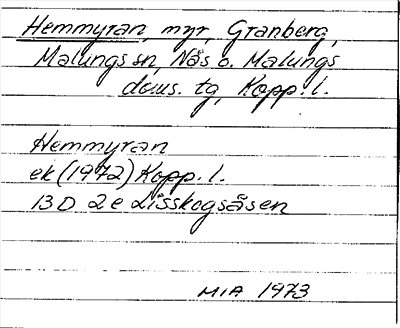 Hemmyran, myr, Granberg,
Malungs sn, Nås o. Malungs
doms. tg, Kopp. l.
Hemmyran
ek (1972) Kopp. l.
13 D 2 e Lisskogsåsen
MIA 1973